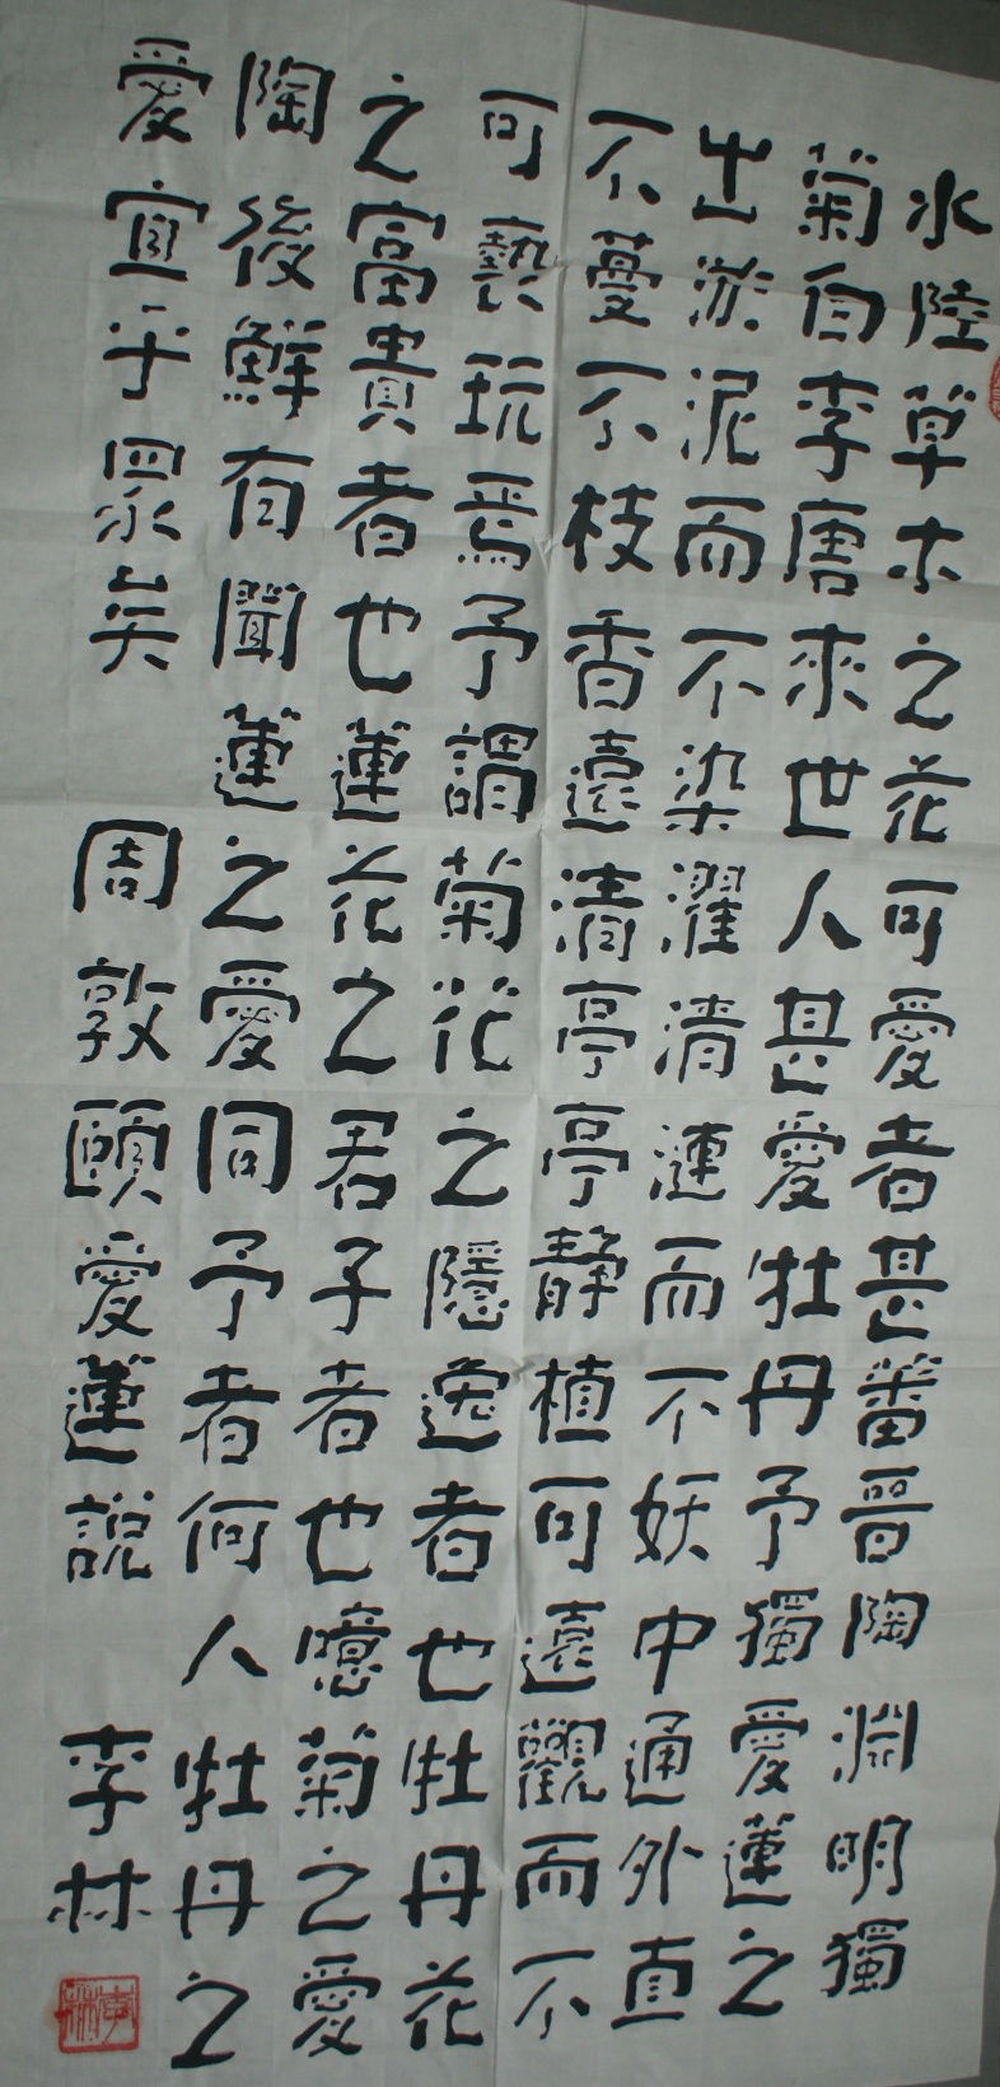 水陸草木之花可愛者甚蕃晉陶淵明獨
菊自李唐來世人甚愛牡丹予獨愛蓮之
出淤泥而不染濯清漣而不妖中通外直
不蔓不枝香遠清亭亭靜植可遠觀而不
可褻玩焉予謂菊花之隱逸者也牡丹花
之富貴者也蓮花之君子者也噫菊之愛
陶後鮮有聞蓮之愛同予者何人牡丹之
愛宜乎眾矣 周敦頤愛蓮說 李林